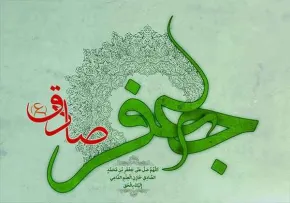 جعفر
صادق (ع)
اللهم صل على جعفر بن محمد
الصادق خازن العلم الداعي
إليك بالحق